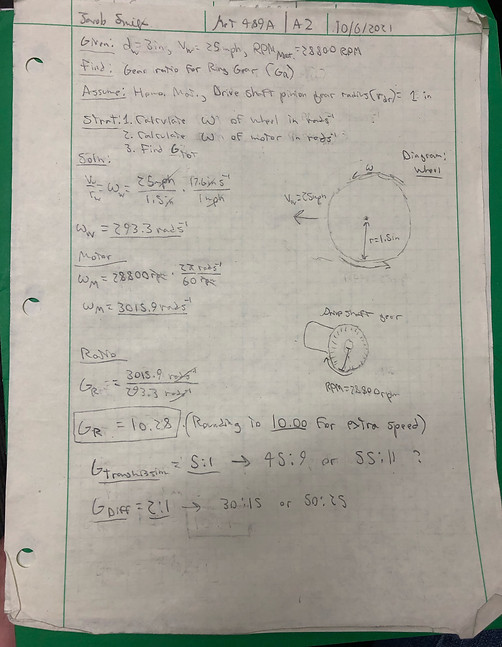 Jacob | Met 489A | A2 | 10/6/2021
Given: dw = 3in, Vw = 25mph, RPM Mot. = 28800 RPM
Find: Gear ratio for Ring Gear (GR)
Assume: Homo. Mat., Drive shaft pinion gear radius (rdr) = 1 in
Strat: 1. Calculate ω of wheel in rads⁻¹
2. Calculate ω of motor in rads⁻¹
3. Find G TOT
Soln:
Diagram:
Wheel
Vw/rw = ωw = 25mph/1.5in · 17.6in s⁻¹/1mph
ω
Vw=25mph
r=1.5in
ωw = 293.3 rads⁻¹
Motor
ωM = 28800rpm · 2π rads⁻¹/60rpm
ωM = 3015.9 rads⁻¹
Drive shaft gear
RPM=28800rpm
Ratio
GR = 3015.9 rads⁻¹/293.3 rads⁻¹
GR = 10.28 (Rounding to 10.00 for extra speed)
G transmission = 5:1 → 45:9 or 55:11 ?
G Diff = 2:1 → 30:15 or 50:25